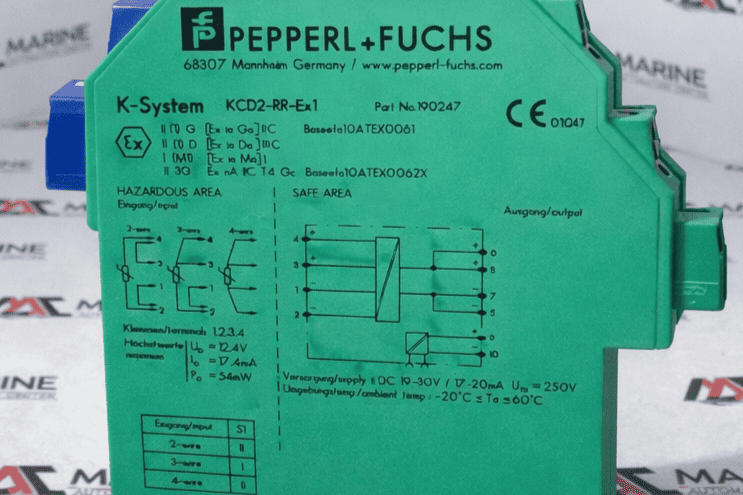 PEPPERL+FUCHS
68307 Mannheim Germany / www.pepperl-fuchs.com
K-System KCD2-RR-Ex1 Part No.190247
CE 01047
Ex
II (1) G [Ex ia Ga] IIC Baseefa10ATEX0061
II (1) D [Ex ia Da] IIIC
I (M1) [Ex ia Ma] I
II 3G Ex nA IIC T4 Gc Baseefa10ATEX0062X
HAZARDOUS AREA SAFE AREA
Eingang/input Ausgang/output
2-wire 3-wire 4-wire
4 4
3 3
1 1
2 2
4 + + 9
3 + + 8
1 − − 7
2 − − 5
+ 9
− 10
Klemmen/terminals 1,2,3,4
Höchstwerte U₀ = 12.4V
maximum I₀ = 17.4mA
P₀ = 54mW
Versorgung/supply : DC 19-30V / 17-20mA Um = 250V
Umgebungstemp/ambient temp.: -20°C ≤ Ta ≤ 60°C
Eingang/input S1
2-wire II
3-wire I
4-wire
MARINE
MARINE
MARINE